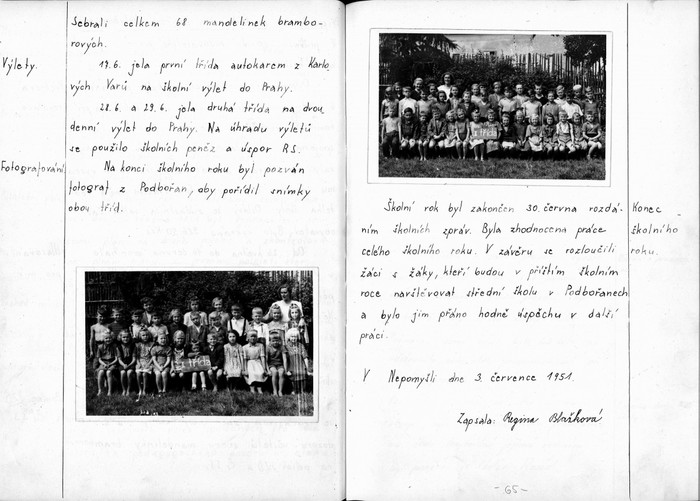 Sebrali celkem 68 mandelinek brambo-
rových.
Výlety.
17.6. jela první třída autokarem z Karlo
vých Varů na školní výlet do Prahy.
28.6. a 29.6. jela druhá třída na dvou
denní výlet do Prahy. Na úhradu výletů
se použilo školních peněz a úspor RS.
Fotografování.
Na konci školního roku byl pozván
fotograf z Podbořan, aby pořídil snímky
obou tříd.
třída
Školní rok byl zakončen 30. června rozdá-
ním školních zpráv. Byla zhodnocena práce
celého školního roku. V závěru se rozloučili
žáci s žáky, kteří budou v příštím školním
roce navštěvovat střední školu v Podbořanech
a bylo jim přáno hodně úspěchu v další
práci.
Konec
školního
roku.
V Nepomyšli dne 3. července 1951.
Zapsala: Regina Blažková
-65-